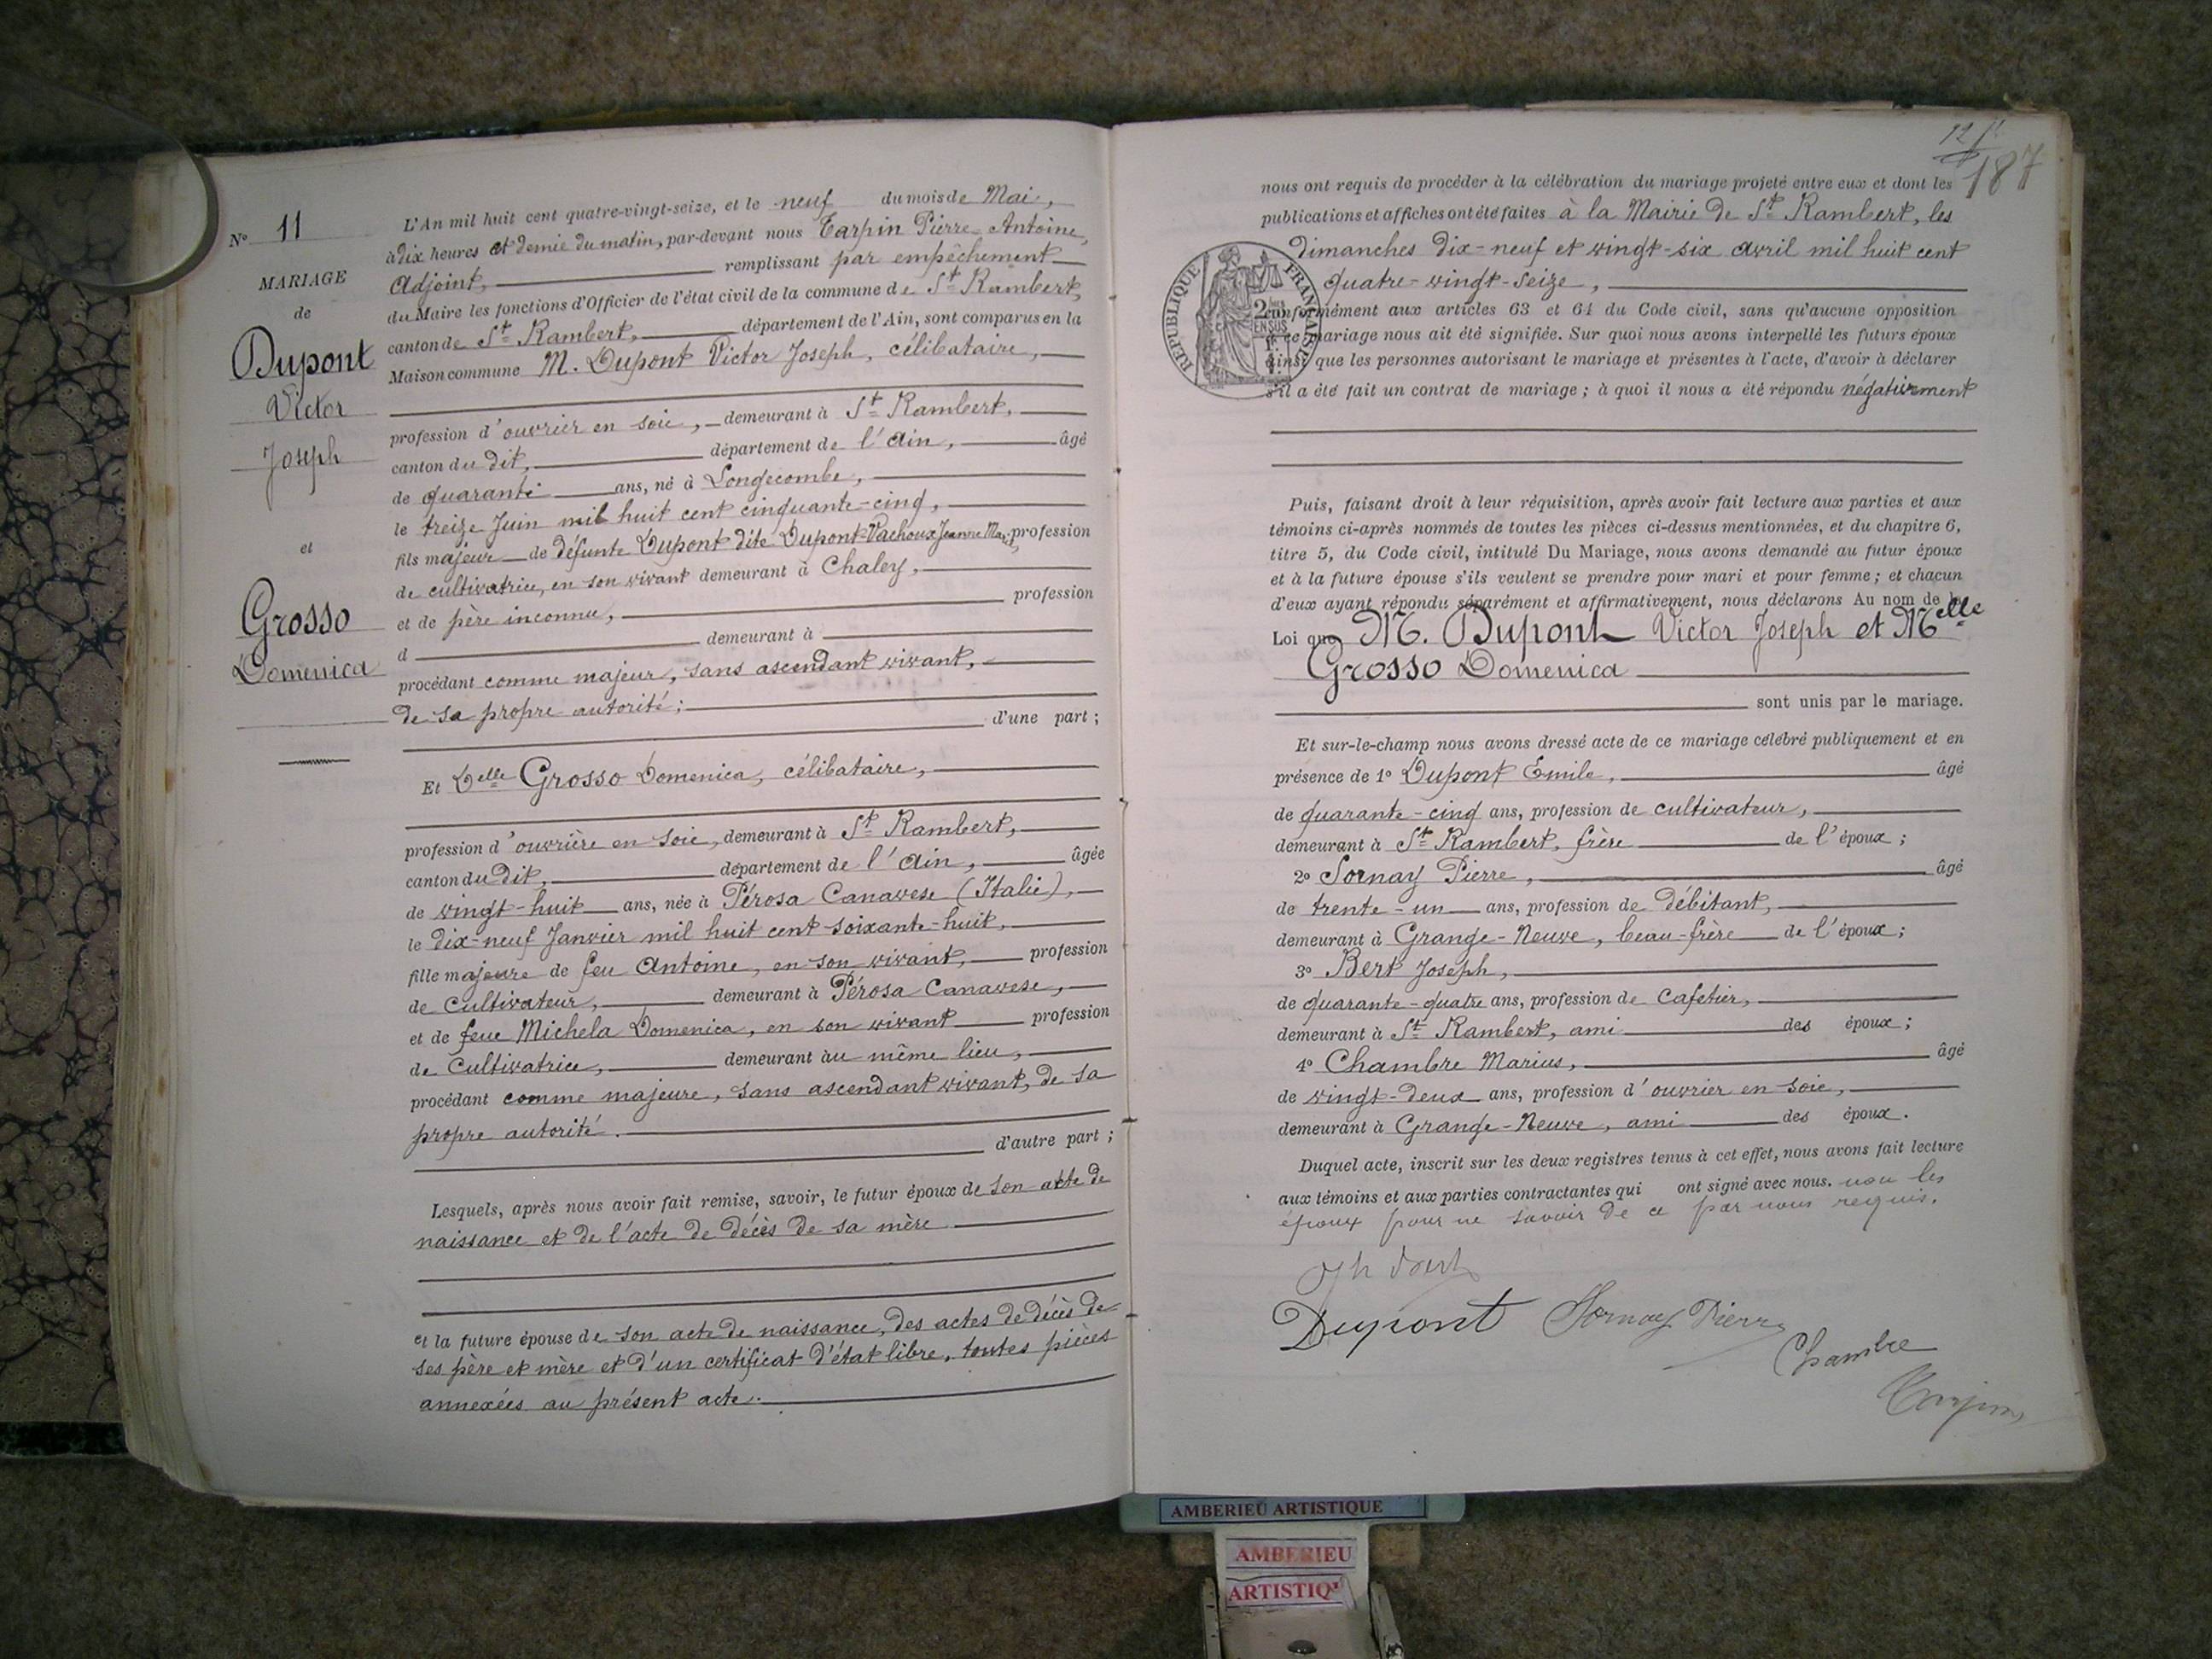 N° 11
MARIAGE
de
Dupont
Victor
Joseph
et
Grosso
Domenica
L'An mil huit cent quatre-vingt-seize, et le neuf du mois de Mai,
à dix heures et demie du matin, par-devant nous Tarpin Pierre-Antoine,
Adjoint, remplissant par empêchement
du Maire les fonctions d'Officier de l'état civil de la commune de St Rambert,
canton de St Rambert, département de l'Ain, sont comparus en la
Maison commune M. Dupont Victor Joseph, célibataire,
profession d'ouvrier en soie, demeurant à St Rambert,
canton du dit, département de l'Ain, âgé
de quarante ans, né à Longecombe,
le treize Juin mil huit cent cinquante-cinq,
fils majeur de défunte Dupont dite Dupont-Vachoux Jeanne Marie, profession
de cultivatrice, en son vivant demeurant à Chaley,
et de père inconnu, profession
d demeurant à
procédant comme majeur, sans ascendant vivant,
de sa propre autorité; d'une part;
Et Delle Grosso Domenica, célibataire,
profession d'ouvrière en soie, demeurant à St Rambert,
canton du dit, département de l'Ain, âgée
de vingt-huit ans, née à Pérosa Canavese (Italie),
le dix-neuf Janvier mil huit cent soixante-huit,
fille majeure de feu Antoine, en son vivant, profession
de Cultivateur, demeurant à Pérosa Canavese,
et de feue Michela Domenica, en son vivant profession
de Cultivatrice, demeurant au même lieu,
procédant comme majeure, sans ascendant vivant, de sa
propre autorité.
d'autre part;
Lesquels, après nous avoir fait remise, savoir, le futur époux de son acte de
naissance et de l'acte de décès de sa mère
et la future épouse de son acte de naissance, des actes de décès de
ses père et mère et d'un certificat d'état libre, toutes pièces
annexées au présent acte.
187
nous ont requis de procéder à la célébration du mariage projeté entre eux et dont les
publications et affiches ont été faites à la Mairie de St Rambert, les
dimanches dix-neuf et vingt-six avril mil huit cent
quatre-vingt-seize,
RÉPUBLIQUE FRANÇAISE
conformément aux articles 63 et 64 du Code civil, sans qu'aucune opposition
à ce mariage nous ait été signifiée. Sur quoi nous avons interpellé les futurs époux
ainsi que les personnes autorisant le mariage et présentes à l'acte, d'avoir à déclarer
s'il a été fait un contrat de mariage; à quoi il nous a été répondu négativement
Puis, faisant droit à leur réquisition, après avoir fait lecture aux parties et aux
témoins ci-après nommés de toutes les pièces ci-dessus mentionnées, et du chapitre 6,
titre 5, du Code civil, intitulé Du Mariage, nous avons demandé au futur époux
et à la future épouse s'ils veulent se prendre pour mari et pour femme; et chacun
d'eux ayant répondu séparément et affirmativement, nous déclarons Au nom de la
Loi que M. Dupont Victor Joseph et Melle
Grosso Domenica
sont unis par le mariage.
Et sur-le-champ nous avons dressé acte de ce mariage célébré publiquement et en
présence de 1° Dupont Emile, âgé
de quarante-cinq ans, profession de cultivateur,
demeurant à St Rambert, frère de l'époux;
2° Sornay Pierre, âgé
de trente-un ans, profession de débitant,
demeurant à Grange-Neuve, beau-frère de l'époux;
3° Bert Joseph,
de quarante-quatre ans, profession de Cafetier,
demeurant à St Rambert, ami des époux;
4° Chambre Marius, âgé
de vingt-deux ans, profession d'ouvrier en soie,
demeurant à Grange-Neuve, ami des époux.
Duquel acte, inscrit sur les deux registres tenus à cet effet, nous avons fait lecture
aux témoins et aux parties contractantes qui ont signé avec nous. non les
époux pour ne savoir de ce par nous requis.
Dupont Sornay Pierre
Chambre
Tarpin
AMBERIEU ARTISTIQUE
AMBERIEU
ARTISTIQU